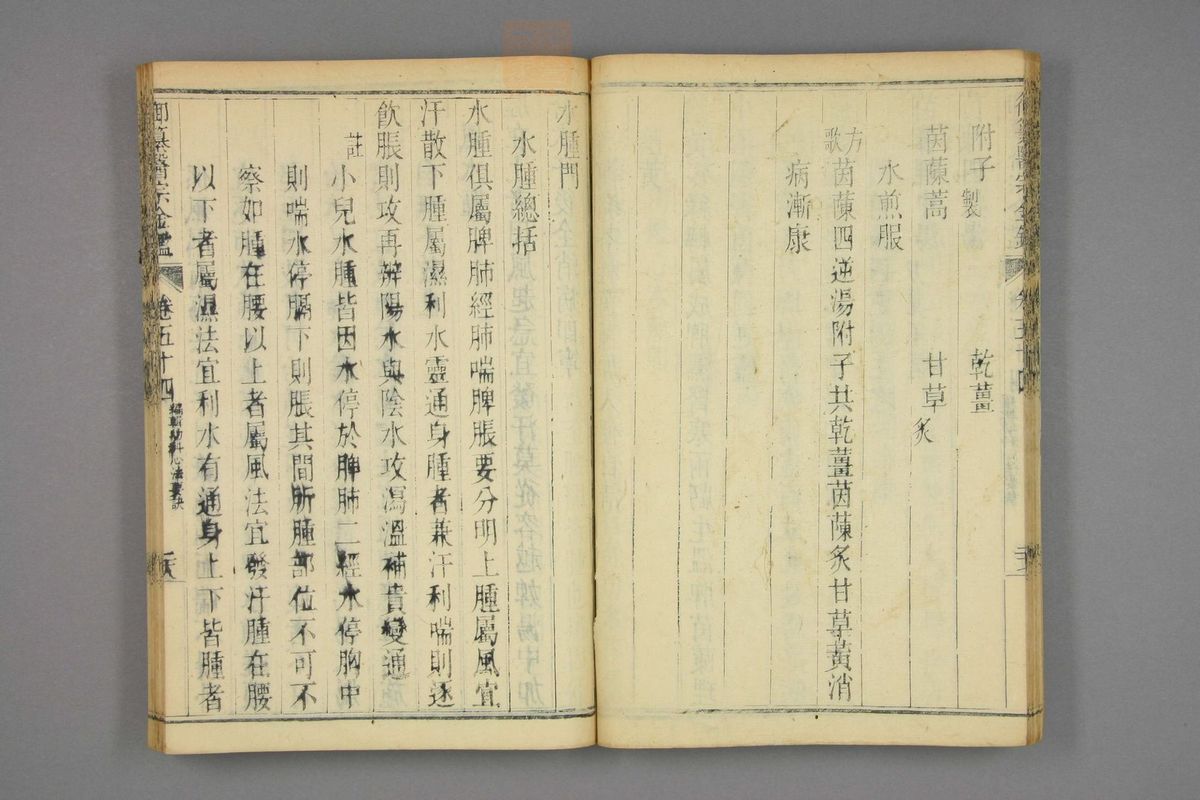 附子製 乾薑
茵蔯蒿 甘草炙
水煎服
方歌 茵蔯四逆湯附子共乾薑茵蔯炙甘草黃消
病漸康
水腫門
水腫總括
水腫俱屬脾肺經肺喘脾脹要分明上腫屬風宜
汗散下腫屬濕利水靈通身腫者兼汗利喘則逐
飲脹則攻再辨陽水與陰水攻瀉溫補貴變通
註 小兒水腫皆因水停於脾肺二經水停胸中
則喘水停膈下則脹其間所腫部位不可不
察如腫在腰以上者屬風法宜發汗腫在腰
以下者屬濕法宜利水有通身上下皆腫者
御纂醫宗金鑑 卷五十四 編輯幼科心法要訣